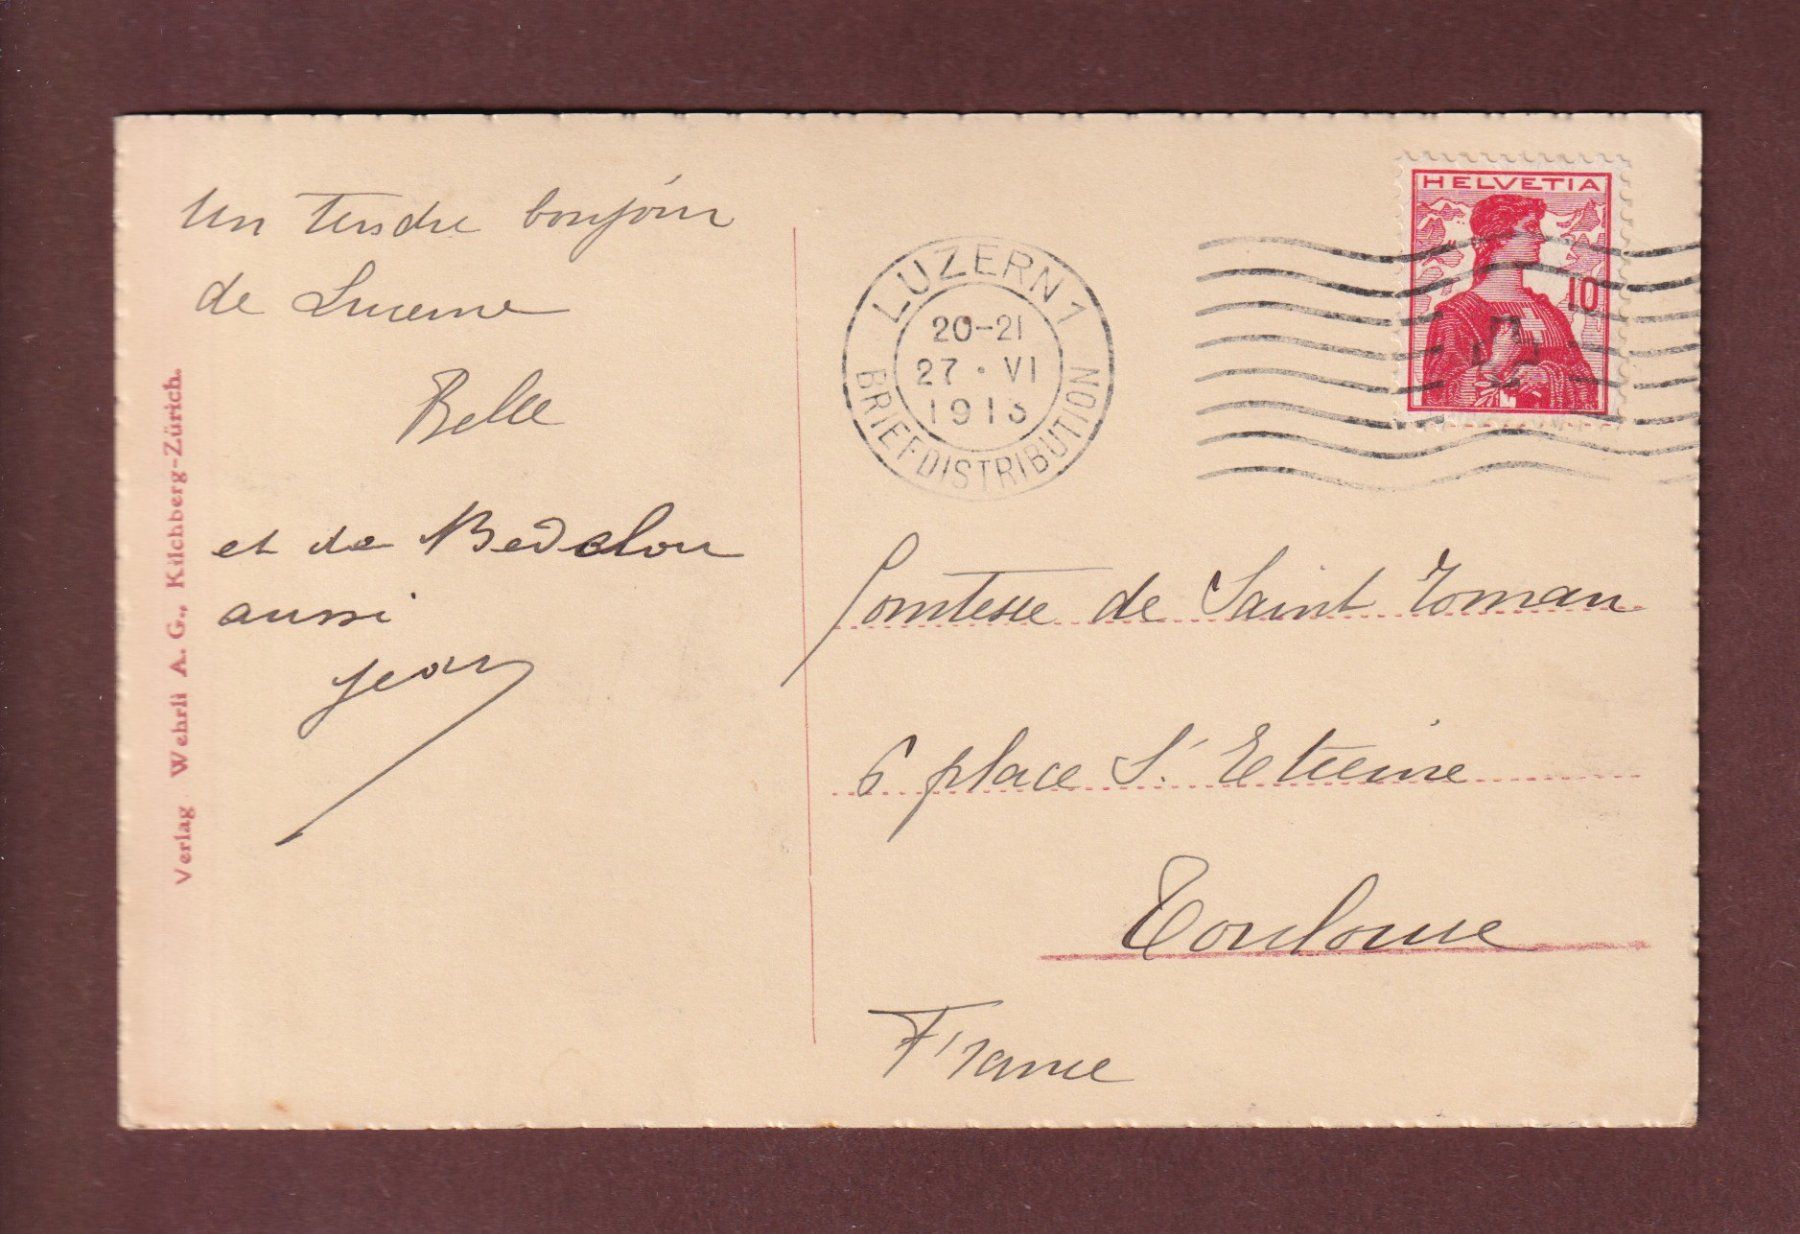 Un tendre bonjour
de Lucerne
Belle
et de
aussi
Jean
Verlag Wehrli A. G., Kilchberg-Zürich.
LUZERN 1
20-21
27 · VI
1913
BRIEFDISTRIBUTION
HELVETIA
10
Comtesse de Saint Roman
6 place St Etienne
Toulouse
France